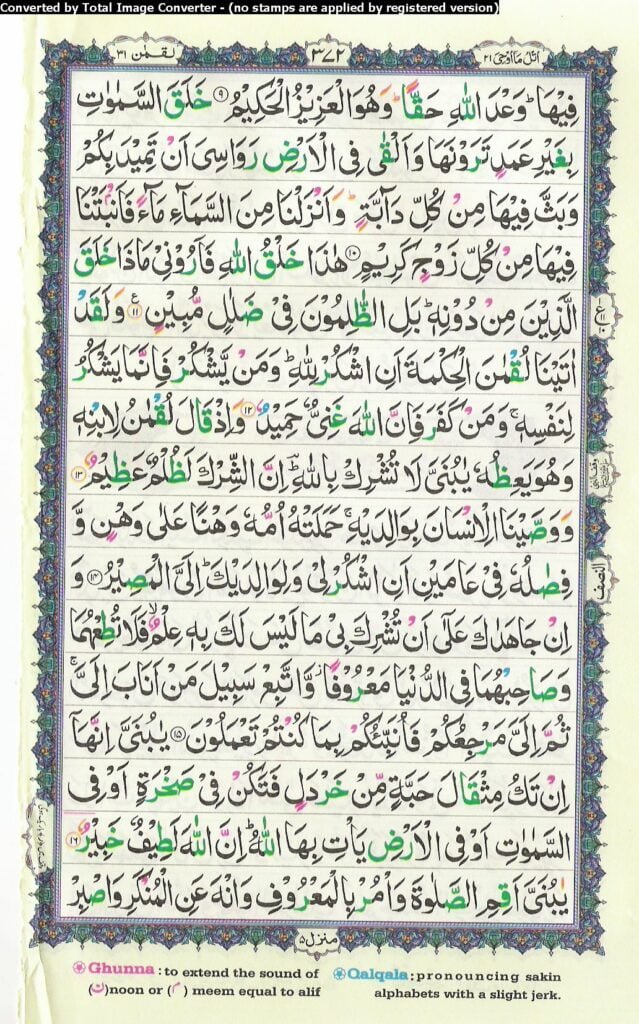 Converted by Total Image Converter - (no stamps are applied by registered version)
اتل ما اوحی ۲۱
۳۷۲
لقمٰن ۳۱
فِيْهَا ؕ وَعْدَ اللّٰهِ حَقًّا ؕ وَهُوَ الْعَزِيْزُ الْحَكِيْمُ ۹ خَلَقَ السَّمٰوٰتِ
بِغَيْرِ عَمَدٍ تَرَوْنَهَا وَاَلْقٰى فِى الْاَرْضِ رَوَاسِىَ اَنْ تَمِيْدَ بِكُمْ
وَبَثَّ فِيْهَا مِنْ كُلِّ دَآبَّةٍ ؕ وَاَنْزَلْنَا مِنَ السَّمَآءِ مَآءً فَاَنْۢبَتْنَا
فِيْهَا مِنْ كُلِّ زَوْجٍ كَرِيْمٍ ۱۰ هٰذَا خَلْقُ اللّٰهِ فَاَرُوْنِىْ مَاذَا خَلَقَ
الَّذِيْنَ مِنْ دُوْنِهٖ ؕ بَلِ الظّٰلِمُوْنَ فِىْ ضَلٰلٍ مُّبِيْنٍ ۱۱ ع وَلَقَدْ
اٰتَيْنَا لُقْمٰنَ الْحِكْمَةَ اَنِ اشْكُرْ لِلّٰهِ ؕ وَمَنْ يَّشْكُرْ فَاِنَّمَا يَشْكُرُ
لِنَفْسِهٖ ۚ وَمَنْ كَفَرَ فَاِنَّ اللّٰهَ غَنِىٌّ حَمِيْدٌ ۱۲ وَاِذْ قَالَ لُقْمٰنُ لِابْنِهٖ
وَهُوَ يَعِظُهٗ يٰبُنَىَّ لَا تُشْرِكْ بِاللّٰهِ ؕ اِنَّ الشِّرْكَ لَظُلْمٌ عَظِيْمٌ ۱۳
وَوَصَّيْنَا الْاِنْسَانَ بِوَالِدَيْهِ ۚ حَمَلَتْهُ اُمُّهٗ وَهْنًا عَلٰى وَهْنٍ وَّ
فِصٰلُهٗ فِىْ عَامَيْنِ اَنِ اشْكُرْ لِىْ وَلِوَالِدَيْكَ ؕ اِلَىَّ الْمَصِيْرُ ۱۴ وَ
اِنْ جَاهَدٰكَ عَلٰٓى اَنْ تُشْرِكَ بِىْ مَا لَيْسَ لَكَ بِهٖ عِلْمٌ ۙ فَلَا تُطِعْهُمَا
وَصَاحِبْهُمَا فِى الدُّنْيَا مَعْرُوْفًا ؗ وَّاتَّبِعْ سَبِيْلَ مَنْ اَنَابَ اِلَىَّ ۚ
ثُمَّ اِلَىَّ مَرْجِعُكُمْ فَاُنَبِّئُكُمْ بِمَا كُنْتُمْ تَعْمَلُوْنَ ۱۵ يٰبُنَىَّ اِنَّهَآ
اِنْ تَكُ مِثْقَالَ حَبَّةٍ مِّنْ خَرْدَلٍ فَتَكُنْ فِىْ صَخْرَةٍ اَوْ فِى
السَّمٰوٰتِ اَوْ فِى الْاَرْضِ يَاْتِ بِهَا اللّٰهُ ؕ اِنَّ اللّٰهَ لَطِيْفٌ خَبِيْرٌ ۱۶
يٰبُنَىَّ اَقِمِ الصَّلٰوةَ وَاْمُرْ بِالْمَعْرُوْفِ وَانْهَ عَنِ الْمُنْكَرِ وَاصْبِرْ
ع
النصف
منزل ۵
Ghunna : to extend the sound of
(ن)noon or (م) meem equal to alif
Qalqala : pronouncing sakin
alphabets with a slight jerk.